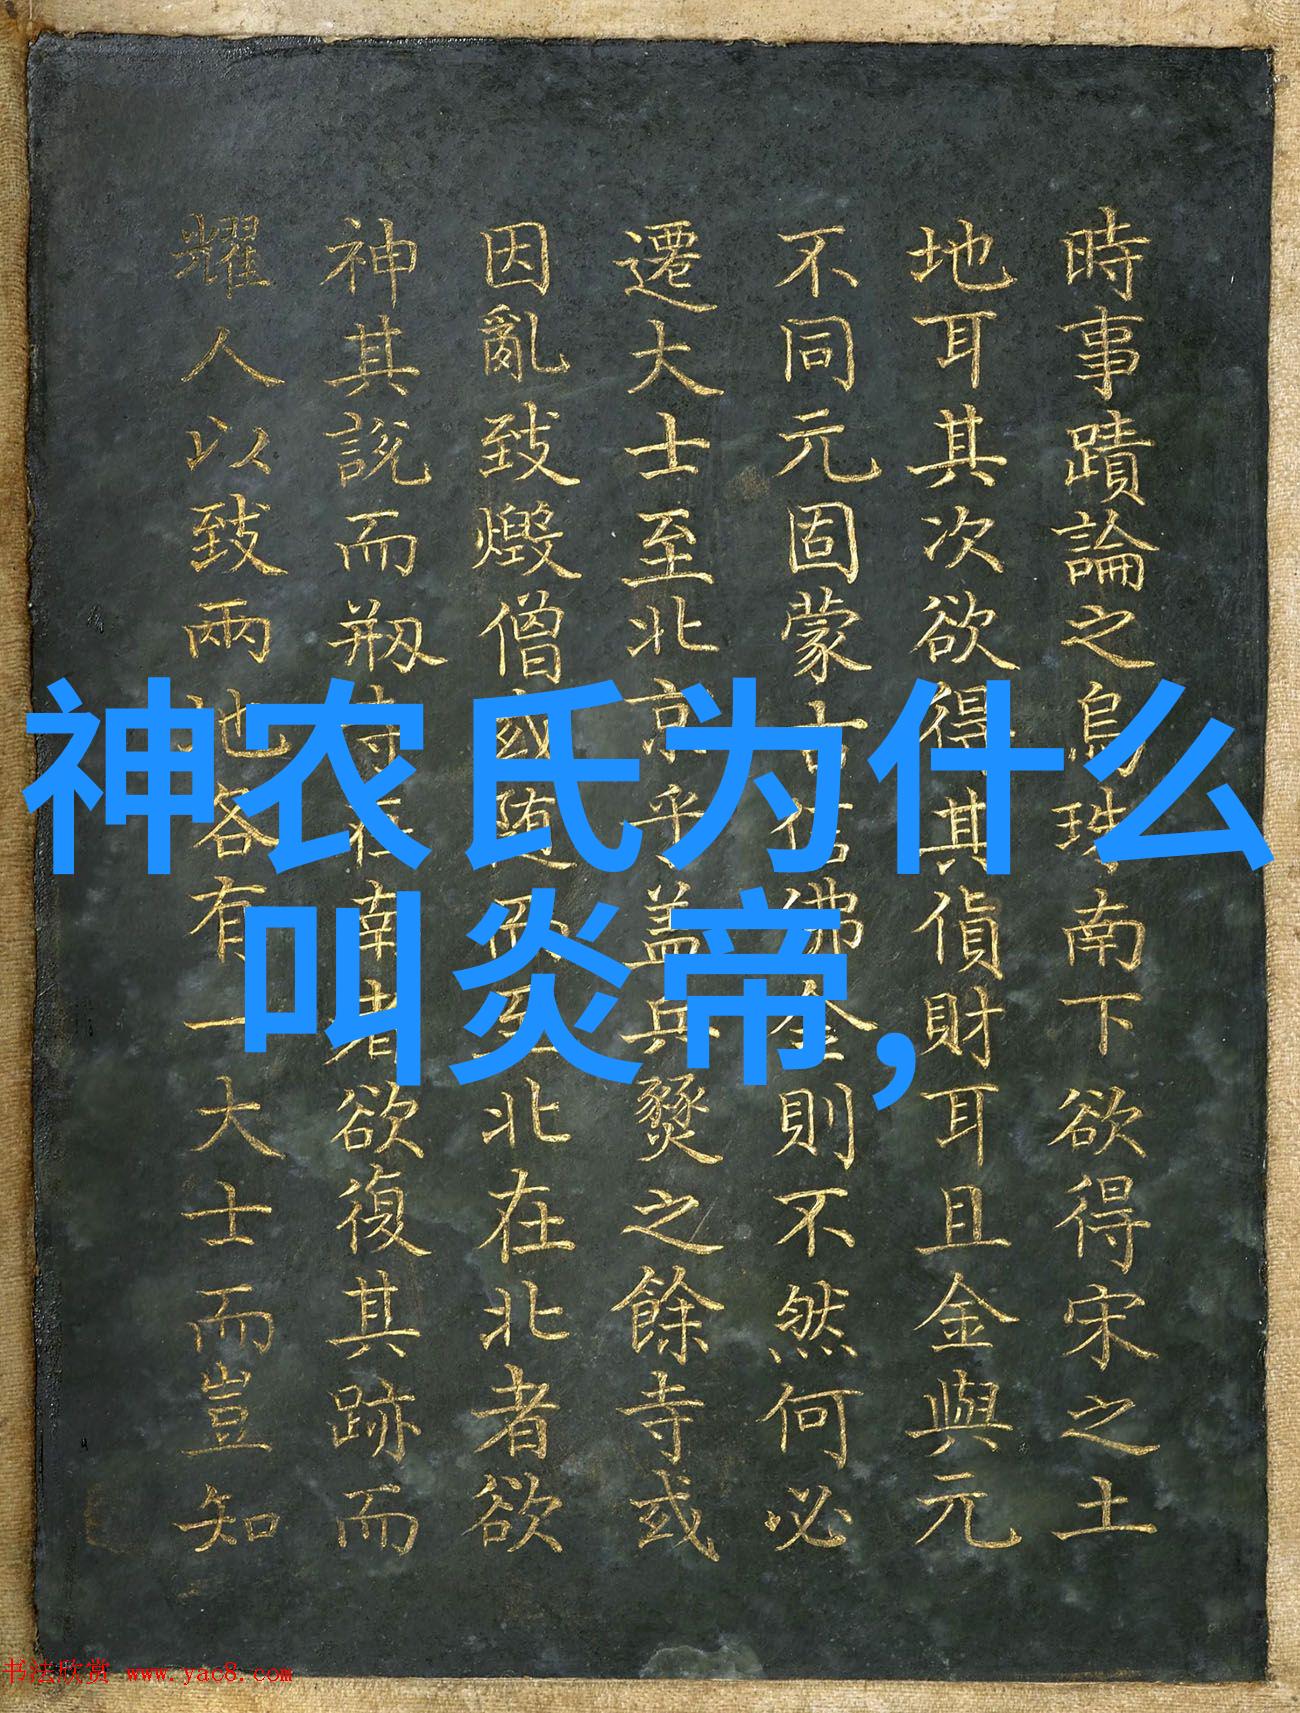 時事蹟論之烏珠南下欲得宋之土
地耳其次欲得其貨財耳且金與元
不同元固蒙古信佛金則不然何必
遷大士至北京乎蓋兵燹之餘寺或
因亂致燬僧或随而至北在北者欲
神其說而刱持在南者欲復其跡而
耀人以致兩地各有一大士而豈知
神农氏为什么
叫炎帝,
书法欣赏 www.yac8.com